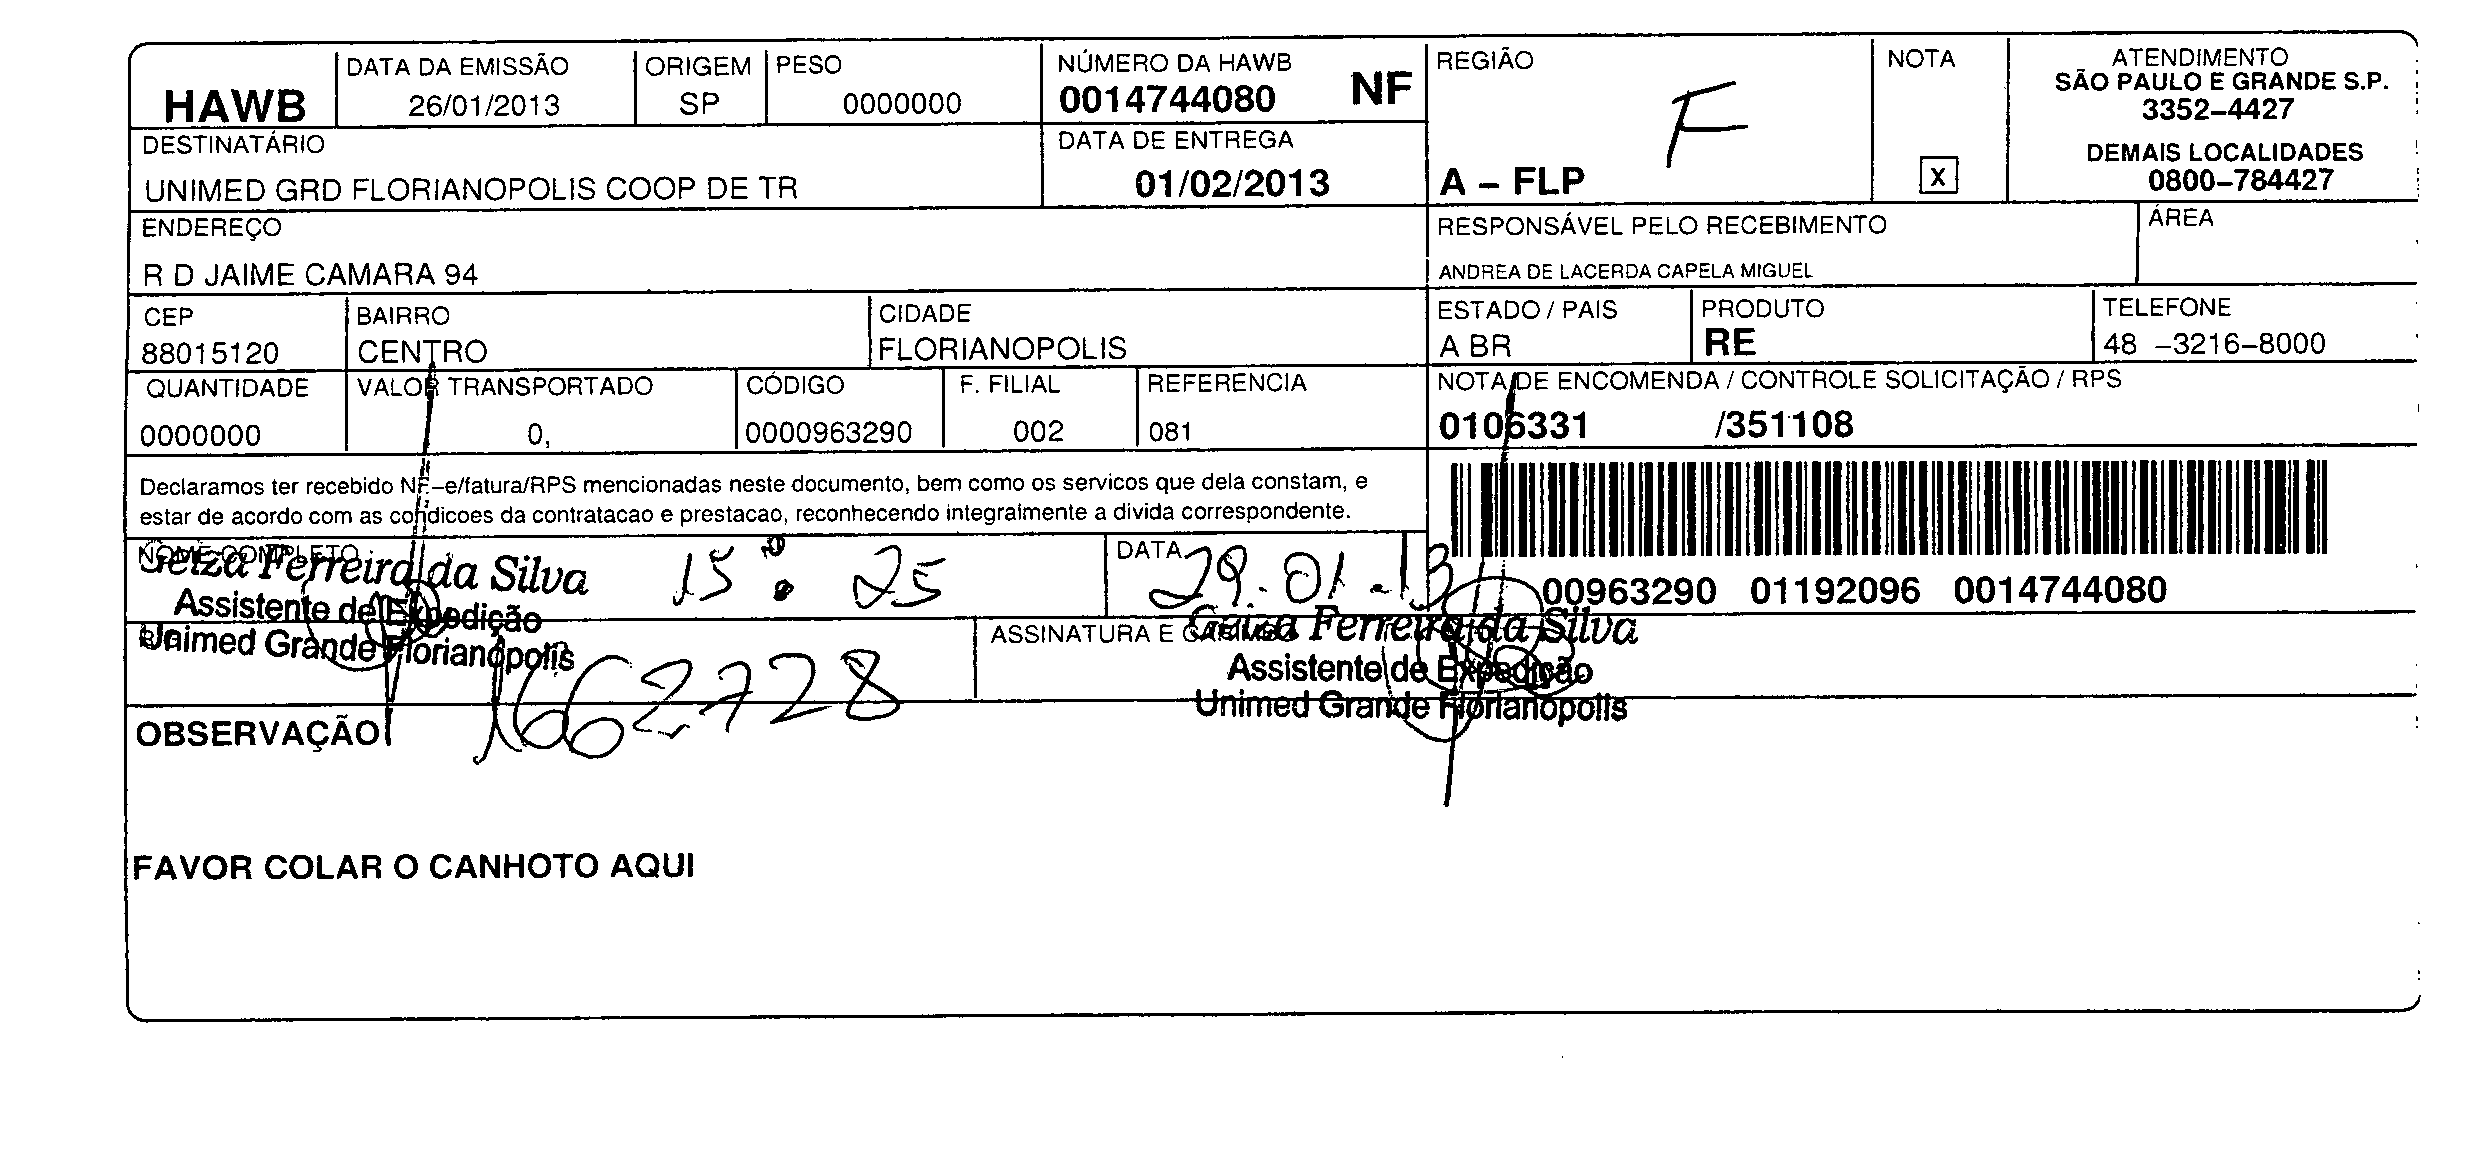 HAWB
DATA DA EMISSÃO
26/01/2013
ORIGEM
SP
PESO
0000000
NÚMERO DA HAWB
0014744080 NF
REGIÃO
F
A – FLP
NOTA
X
ATENDIMENTO
SÃO PAULO E GRANDE S.P.
3352–4427
DEMAIS LOCALIDADES
0800–784427
DESTINATÁRIO
UNIMED GRD FLORIANOPOLIS COOP DE TR
DATA DE ENTREGA
01/02/2013
ENDEREÇO
R D JAIME CAMARA 94
RESPONSÁVEL PELO RECEBIMENTO
ANDREA DE LACERDA CAPELA MIGUEL
ÁREA
CEP
88015120
BAIRRO
CENTRO
CIDADE
FLORIANOPOLIS
ESTADO / PAIS
A BR
PRODUTO
RE
TELEFONE
48 –3216–8000
QUANTIDADE
0000000
VALOR TRANSPORTADO
0,
CÓDIGO
0000963290
F. FILIAL
002
REFERENCIA
081
NOTA DE ENCOMENDA / CONTROLE SOLICITAÇÃO / RPS
0106331 /351108
Declaramos ter recebido NF–e/fatura/RPS mencionadas neste documento, bem como os servicos que dela constam, e
estar de acordo com as condicoes da contratacao e prestacao, reconhecendo integralmente a divida correspondente.
00963290 01192096 0014744080
NOME COMPLETO
Geiza Ferreira da Silva
Assistente de Expedição
Unimed Grande Florianópolis
15:25
DATA
29.01.13
1662728
ASSINATURA E CARIMBO
Geiza Ferreira da Silva
Assistente de Expedição
Unimed Grande Florianópolis
OBSERVAÇÃO
FAVOR COLAR O CANHOTO AQUI